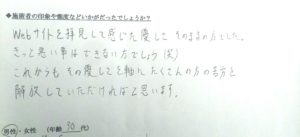 ◆施術者の印象や態度などいかがだったでしょうか？
Webサイトを拝見して感じた優しさ そのままの方でした。
きっと悪い事はできない方でしょう（笑）
これからも その優しさを軸に たくさんの方の苦労を
解放していただければと思います。
男性・女性 （年齢 30 代）